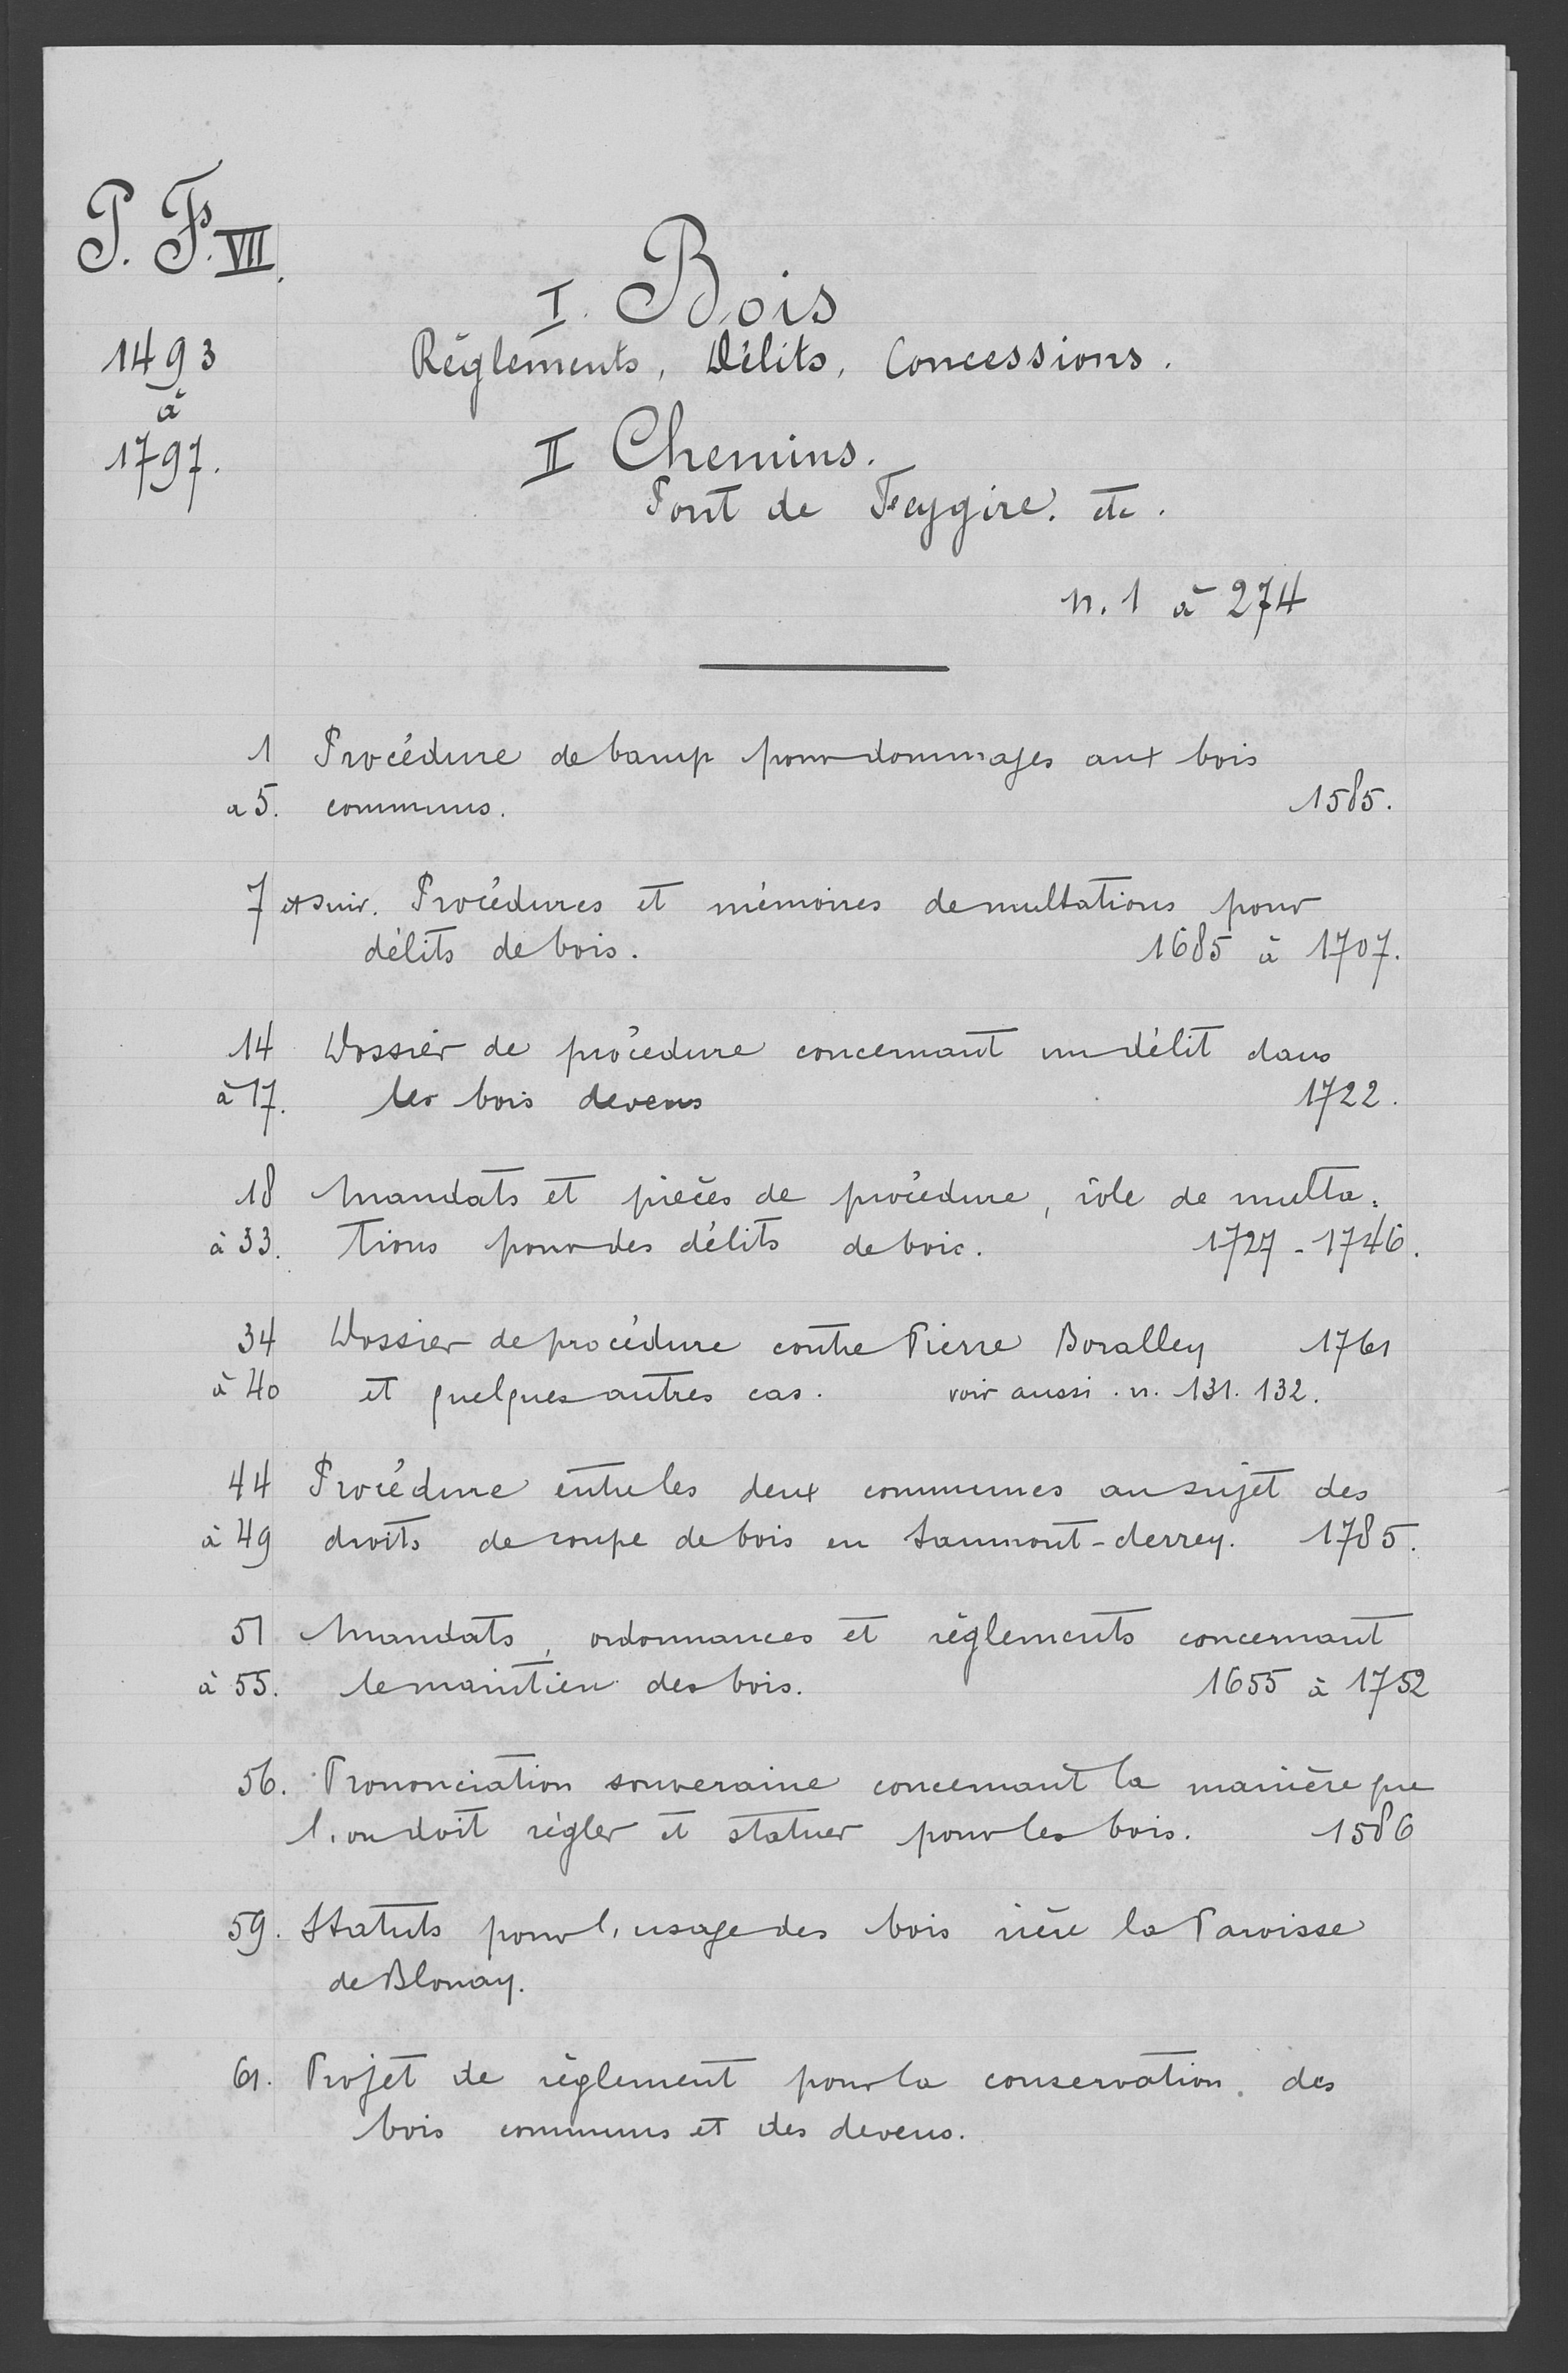 P. F. VII.
I. Bois
1493 Réglements, Délits, Concessions.
à
1797. II Chemins.
Pont de Feygire. etc.
n. 1 à 274
1 Procédure de bamp pour dommages aux bois
a 5. communs. 1585.
7 et suiv. Procédures et mémoires de multations pour
délits de bois. 1685 à 1707.
14 Dossier de procédure concernant un délit dans
à 17. les bois devens 1722.
18 Mandats et pièces de procédure, rôle de multa=
à 33. tions pour des délits de bois. 1727 - 1746.
34 Dossier de procédure contre Pierre Boralley 1761
à 40 et quelques autres cas. voir aussi. n. 131. 132.
44 Procédure entre les deux communes au sujet des
à 49 droits de coupe de bois en Saumont-derrey. 1785.
51 Mandats, ordonnances et réglements concernant
à 55. le maintien des bois. 1655 à 1752
56. Prononciation souveraine concernant la manière que
l'on doit régler et statuer pour les bois. 1586
59. Statuts pour l'usage des bois rière la Paroisse
de Blonay.
61. Projet de règlement pour la conservation des
bois communs et des devens.